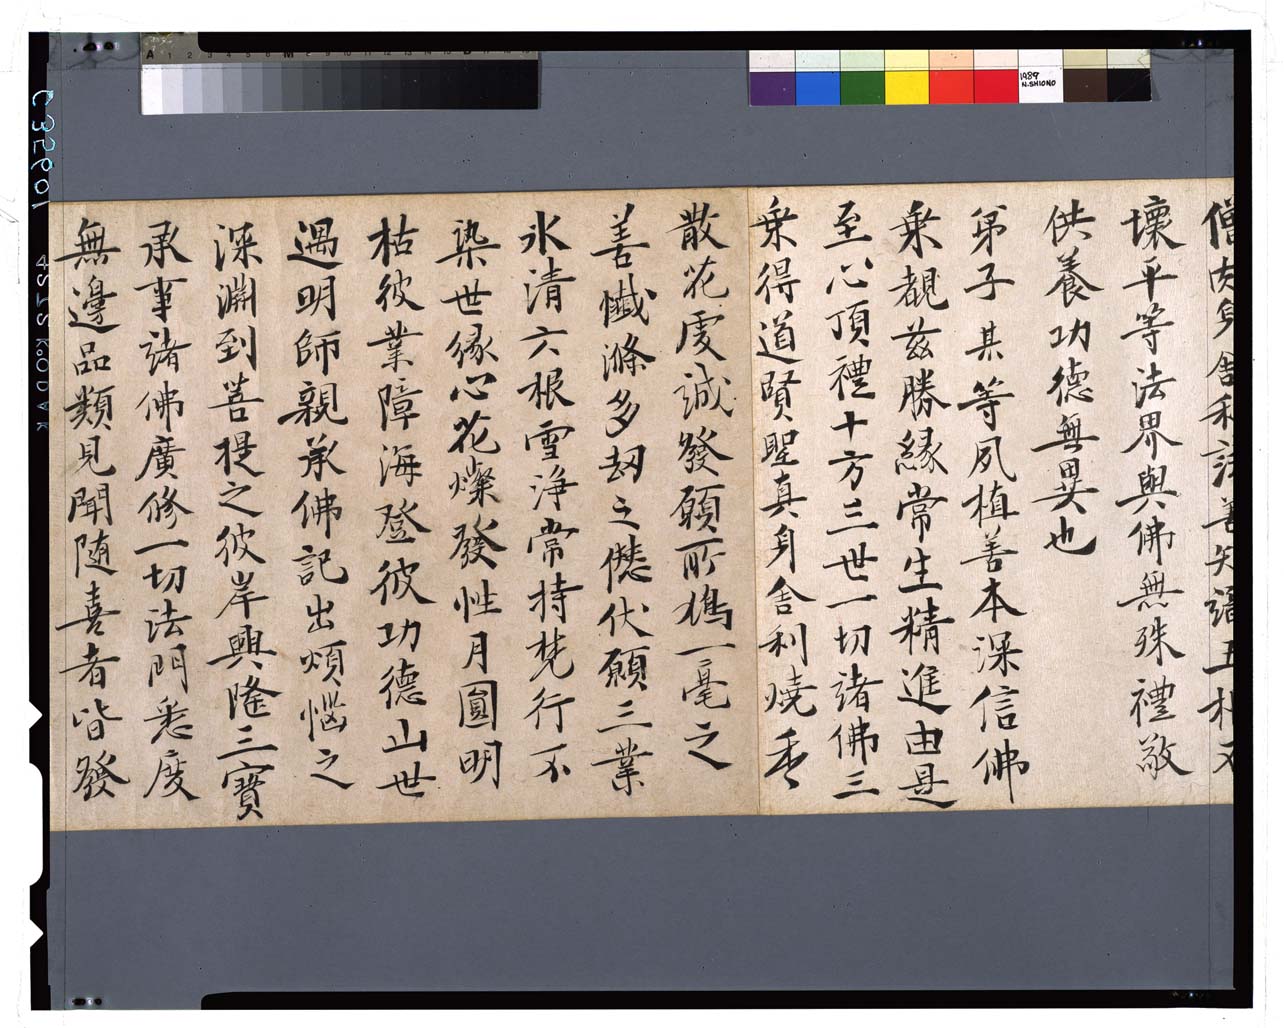 僧肉身舍利法善知識五朴不
壞平等法界與佛無殊禮敬
供養功德無異也
弟子某等夙植善本深信佛
乗覩茲勝緣常生精進由是
至心頂禮十方三世一切諸佛三
乗得道賢聖真身舍利燒香
散花虔誠發願所鳩一毫之
善懺滌多劫之愆伏願三業
氷清六根雪淨常持梵行不
染世緣心花燦發性月圓明
枯彼業障海登彼功德山世
遇明師親承佛記出煩惱之
深淵到菩提之彼岸興隆三寶
承事諸佛廣修一切法門悉度
無邊品類見聞随喜者皆發
C35601 4S IS KODAK
A 1 2 3 4 5 6 M 8 9 10 11 12 13 14 15 B 17 18 19
1989
N.SHIONO